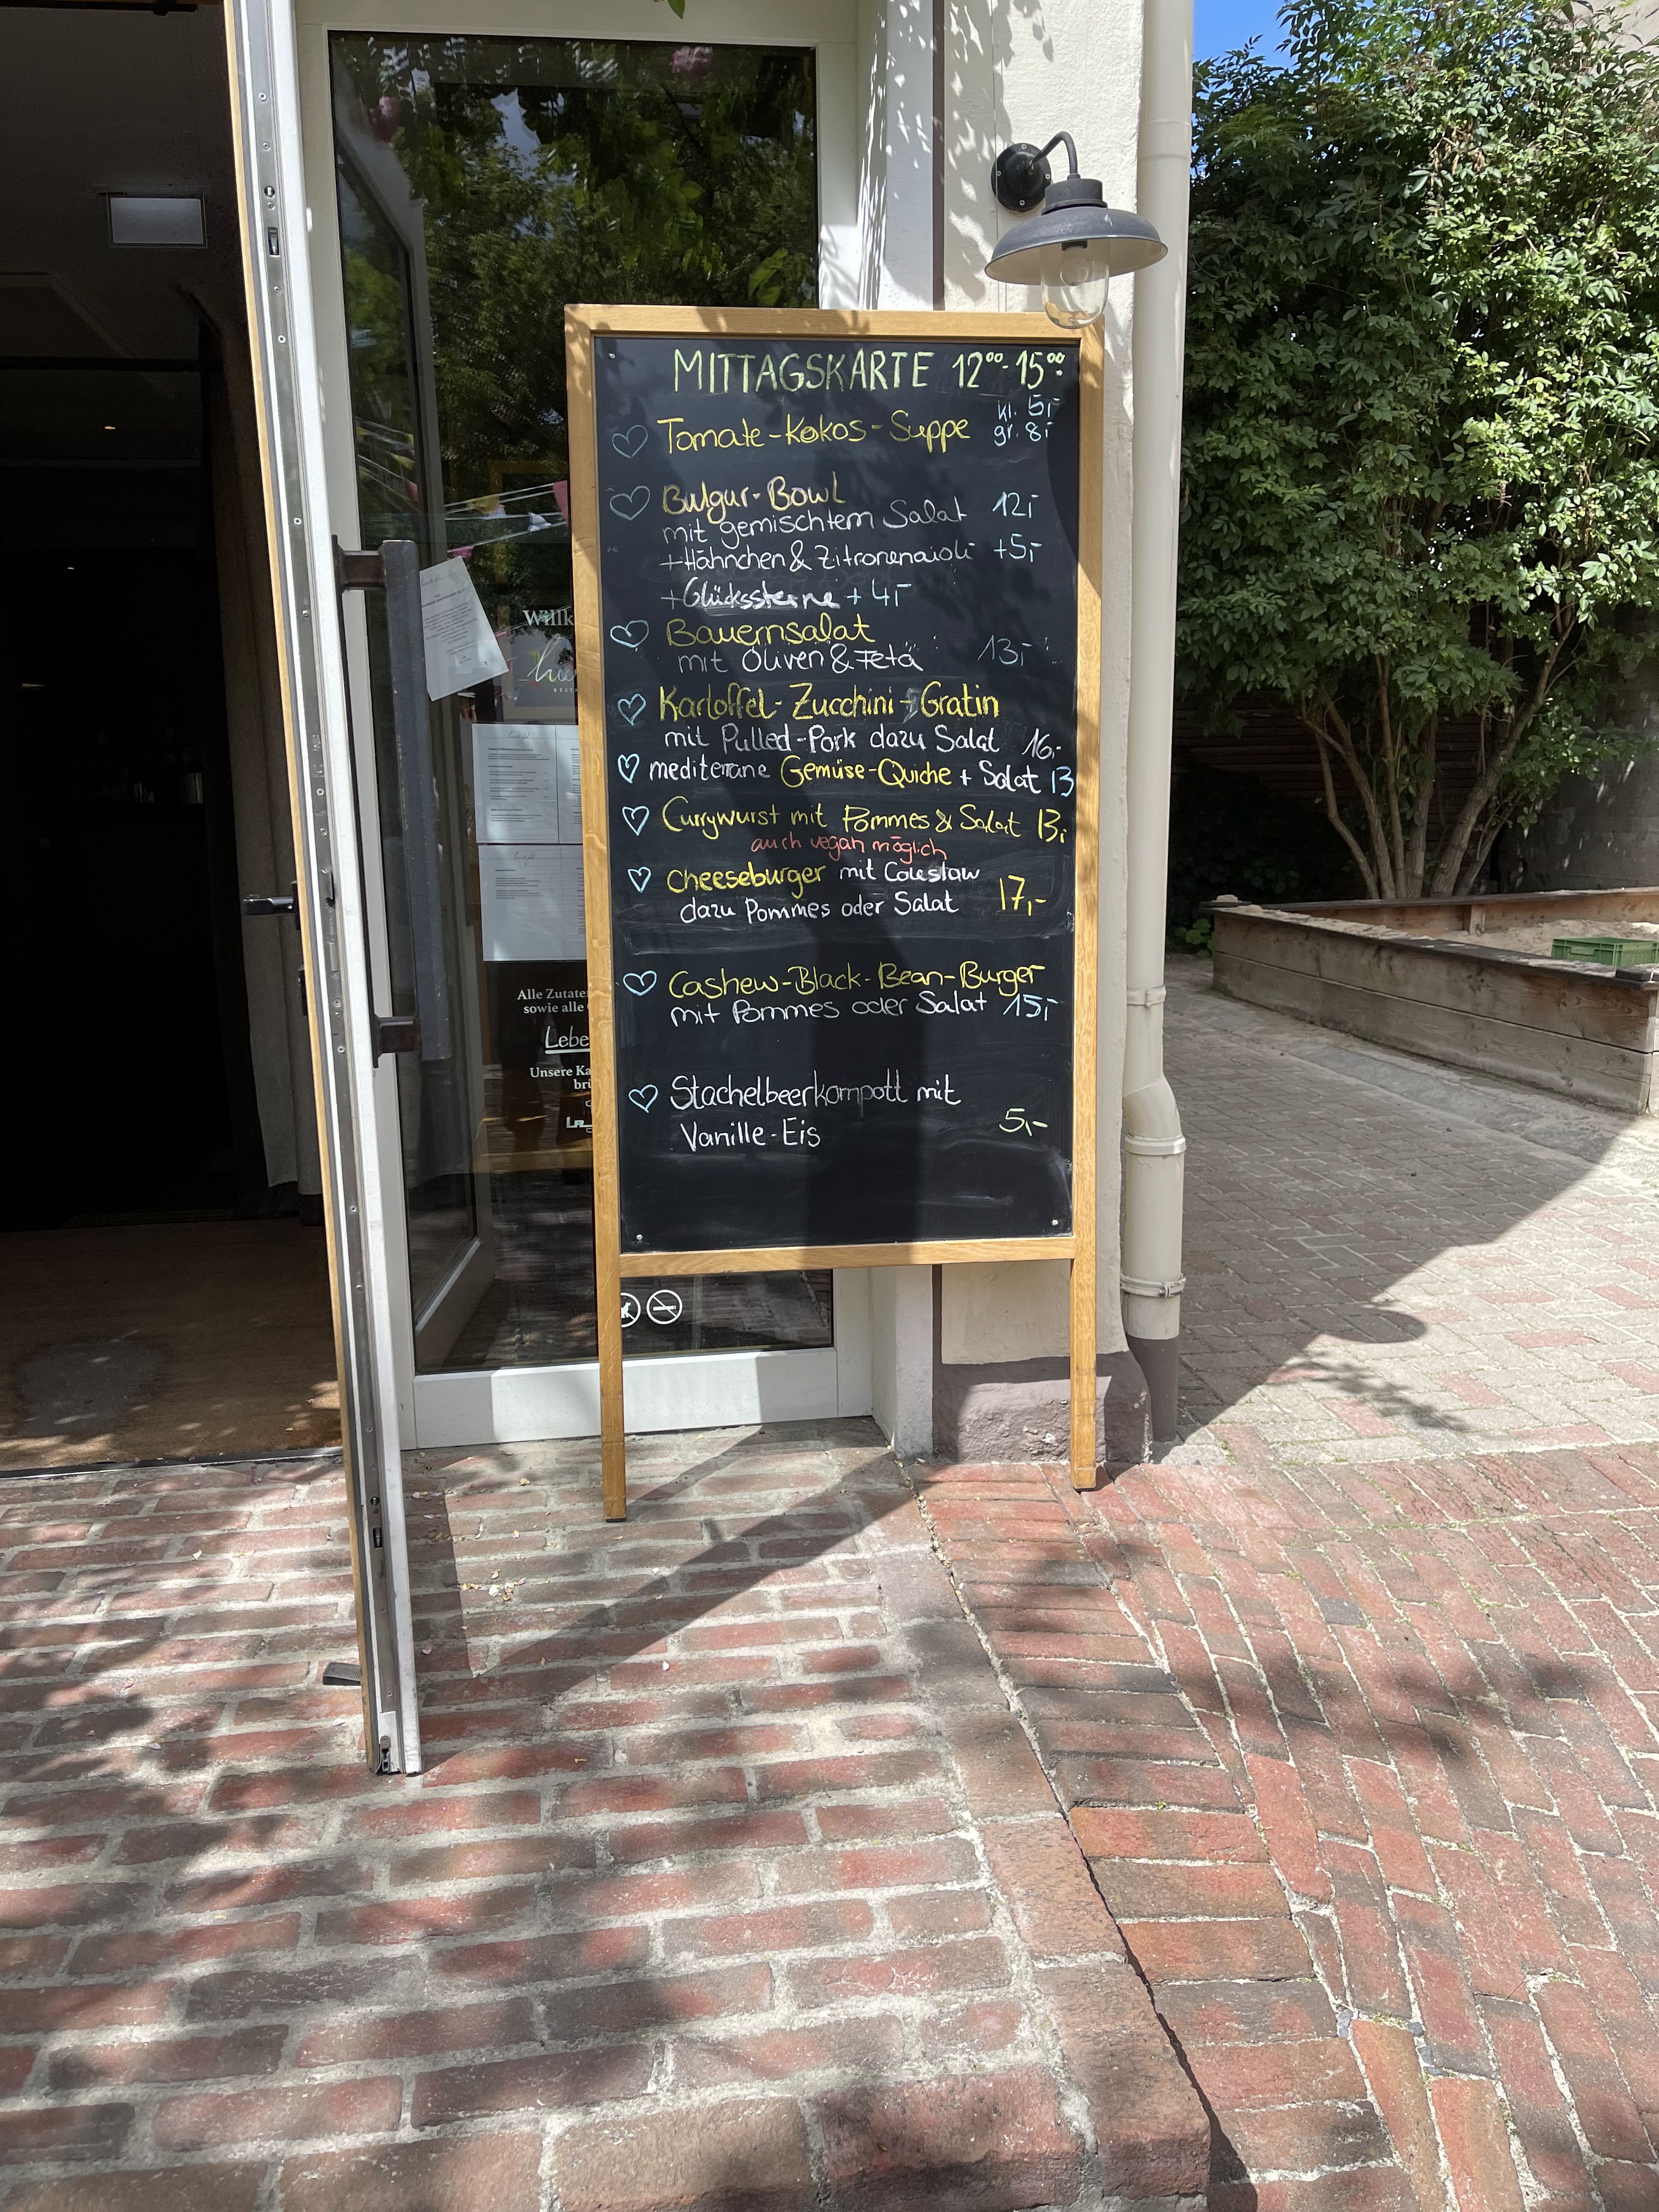 MITTAGSKARTE 12⁰⁰-15⁰⁰
Tomate-Kokos-Suppe kl. 5,- gr. 8,-
Bulgur-Bowl
mit gemischtem Salat 12,-
+Hähnchen & Zitronenaioli +5,-
+Glückssterne + 4,-
Bauernsalat
mit Oliven & Feta 13,-
Kartoffel-Zucchini-Gratin
mit Pulled-Pork dazu Salat 16,-
mediterrane Gemüse-Quiche + Salat 13
Currywurst mit Pommes & Salat 13,-
auch vegan möglich
Cheeseburger mit Coleslaw
dazu Pommes oder Salat 17,-
Cashew-Black-Bean-Burger
mit Pommes oder Salat 15,-
Stachelbeerkompott mit
Vanille-Eis 5,-
Willk
Alle Zutate
sowie alle
Lebe
Unsere Ka
brü